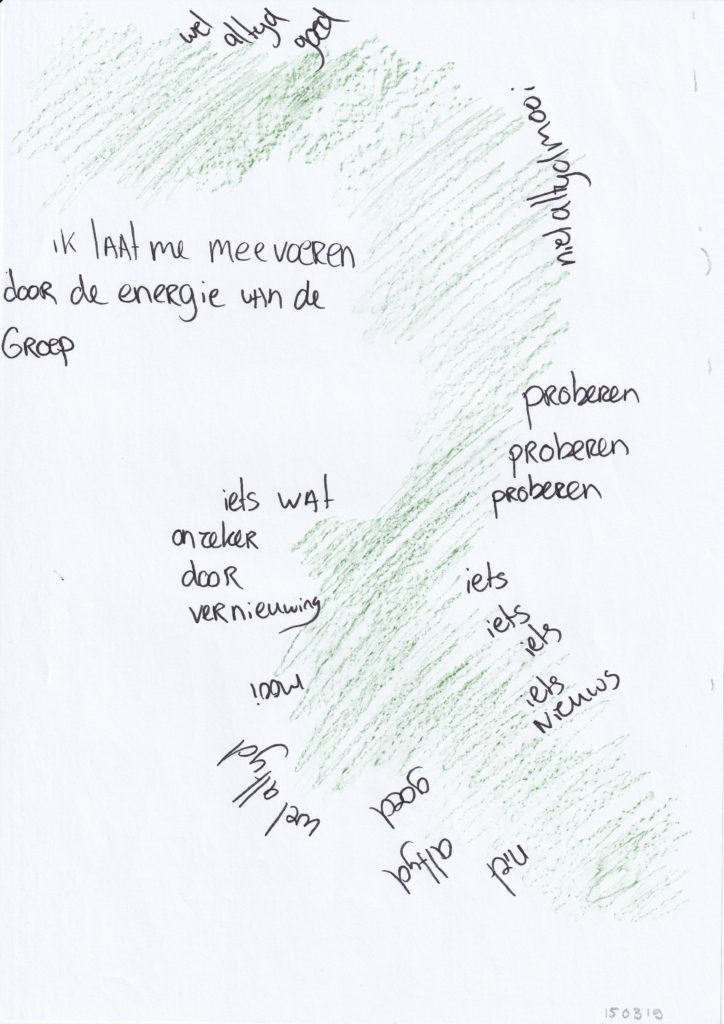 wel altyd goed
niet altyd mooi
ik laat me meevoeren
door de energie van de
Groep
proberen
proberen
proberen
iets wat
onzeker
door
vernieuwing
iets
iets
iets
iets
nieuws
mooi
altyd
wel
goed
altyd
niet
150319